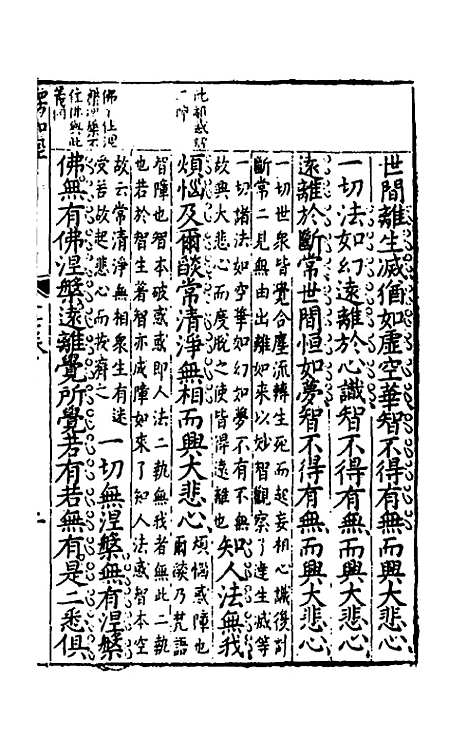 世間離生滅猶如虛空華智不得有無而興大悲心
一切法如幻遠離於心識智不得有無而興大悲心
遠離於斷常世間恒如夢智不得有無而興大悲心
一切世衆皆覺合塵流轉生死而起妄相心識後對
斷常二見無由出離如來以妙智觀察了達生滅等
一切諸法如空華如幻如夢不有不無
故興大悲心而度脫之使皆得遠離也
知人法無我
煩惱及爾燄常清淨無相而興大悲心
煩惱或障也爾燄乃梵語
智障也智本破惑或即人法二執無我者無此二執
也若於智生著智亦成障如來了知人法惑智本空
故云常清淨無相衆生有迷
受若故起悲心而救濟之
一切無涅槃無有涅槃
佛無有佛涅槃遠離覺所覺若有若無有是二悉俱
楞伽經